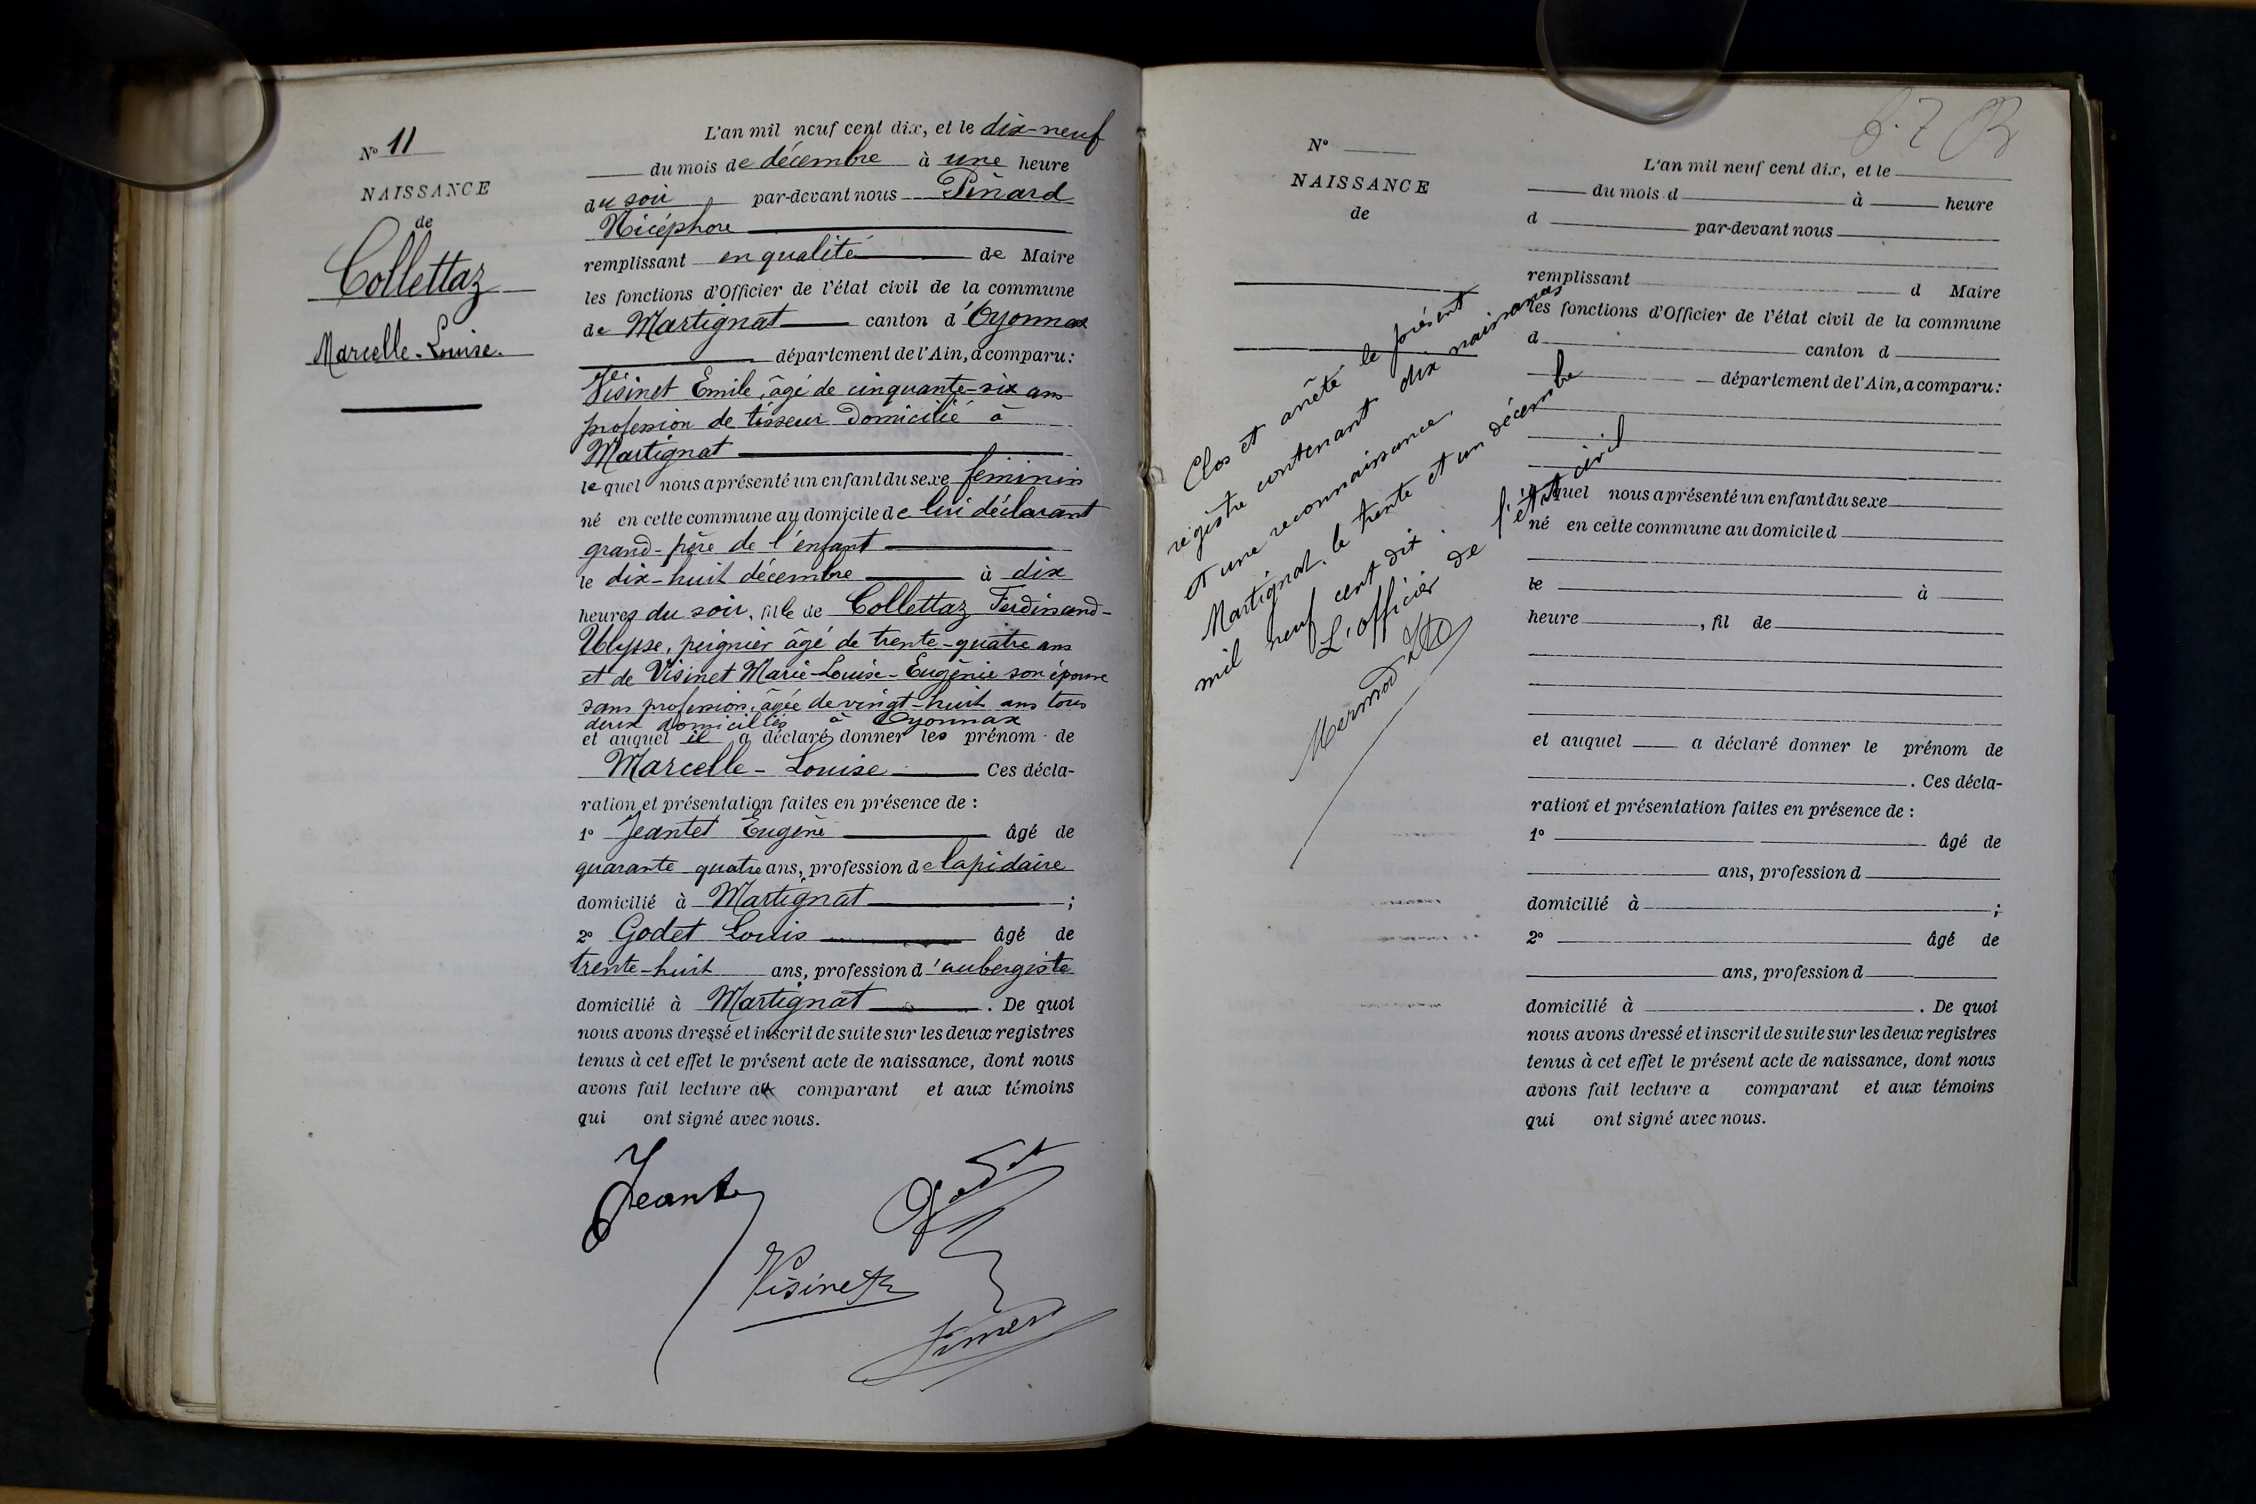 N° 11
NAISSANCE
de
Collettaz
Marcelle-Louise.
L'an mil neuf cent dix, et le dix-neuf
du mois de décembre à une heure
du soir par-devant nous Pinard
Nicéphore
remplissant en qualité de Maire
les fonctions d'Officier de l'état civil de la commune
de Martignat canton d'Oyonnax
département de l'Ain, a comparu :
Visinet Emile, âgé de cinquante-six ans
profession de tisseur domicilié à
Martignat
lequel nous a présenté un enfant du sexe féminin
né en cette commune au domicile de lui déclarant
grand-père de l'enfant
le dix-huit décembre à dix
heures du soir, fille de Collettaz Ferdinand-
Ulysse, peignier âgé de trente-quatre ans
et de Visinet Marie-Louise-Eugénie son épouse
sans profession, âgée de vingt-huit ans tous
deux domiciliés à Oyonnax
et auquel il a déclaré donner les prénom de
Marcelle-Louise Ces décla-
ration et présentation faites en présence de :
1° Jeantet Eugène âgé de
quarante quatre ans, profession de lapidaire
domicilié à Martignat ;
2° Godet Louis âgé de
trente-huit ans, profession d'aubergiste
domicilié à Martignat . De quoi
nous avons dressé et inscrit de suite sur les deux registres
tenus à cet effet le présent acte de naissance, dont nous
avons fait lecture au comparant et aux témoins
qui ont signé avec nous.
Jeantet
Godet
Visinet
N°
NAISSANCE
de
Clos et arrêté le présent
régistre contenant dix naissances
et une reconnaissance.
Martignat, le trente et un décembre
mil neuf cent dix.
L'officier de l'état civil
L'an mil neuf cent dix, et le
du mois d à heure
d par-devant nous
remplissant d Maire
les fonctions d'Officier de l'état civil de la commune
d canton d
département de l'Ain, a comparu :
lequel nous a présenté un enfant du sexe
né en cette commune au domicile d
le à
heure , fil de
et auquel a déclaré donner le prénom de
. Ces décla-
ration et présentation faites en présence de :
1° âgé de
ans, profession d
domicilié à ;
2° âgé de
ans, profession d
domicilié à . De quoi
nous avons dressé et inscrit de suite sur les deux registres
tenus à cet effet le présent acte de naissance, dont nous
avons fait lecture a comparant et aux témoins
qui ont signé avec nous.